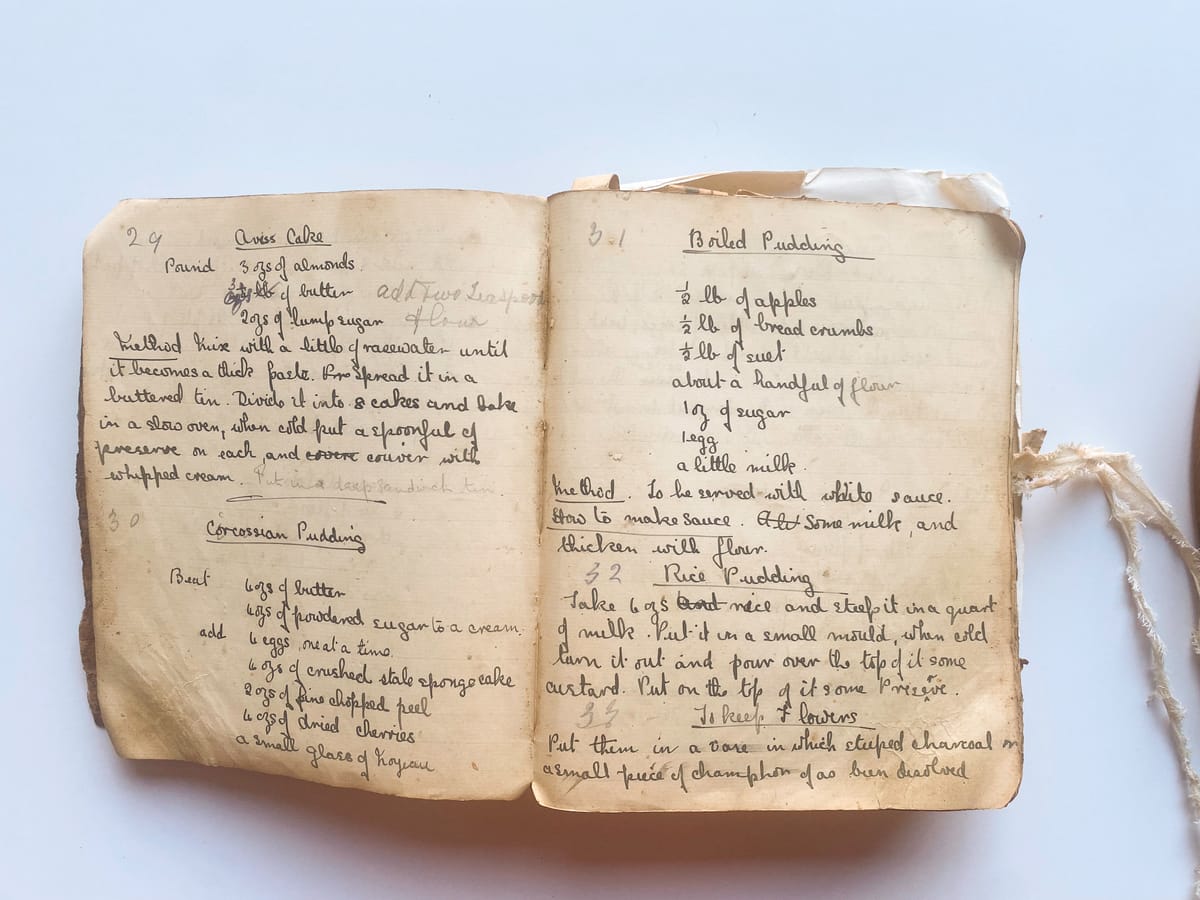 29 Aviss Cake
Pound 3 ozs of almonds.
of butter add Two Teaspoon
2 ozs of lump sugar flour
Method Mix with a little of rosewater until
it becomes a thick paste. Spread it in a
buttered tin. Divide it into 8 cakes and bake
in a slow oven, when cold put a spoonful of
preserve on each, and covere couver with
whipped cream. Put in a deep sandwich tin.
30
Corcossian Pudding
Beat 4 ozs of butter
4 ozs of powdered sugar to a cream.
add 4 eggs, one at a time.
4 ozs of crushed stale sponge cake
2 ozs of fine chopped peel
4 ozs of dried cherries
a small glass of Noyeau
31 Boiled Pudding
1/2 lb of apples
1/2 lb of bread crumbs
1/2 lb of suet
about a handful of flour
1 oz of sugar
1 egg
a little milk.
Method. To be served with white sauce.
How to make sauce. Some milk, and
thicken with flour.
32 Rice Pudding
Take 4 ozs and rice and steep it in a quart
of milk. Put it in a small mould, when cold
turn it out and pour over the top of it some
custard. Put on the top of it some Preserve.
33 To keep Flowers
Put them in a vase in which steeped charcoal or
a small piece of champhor of as been disolved